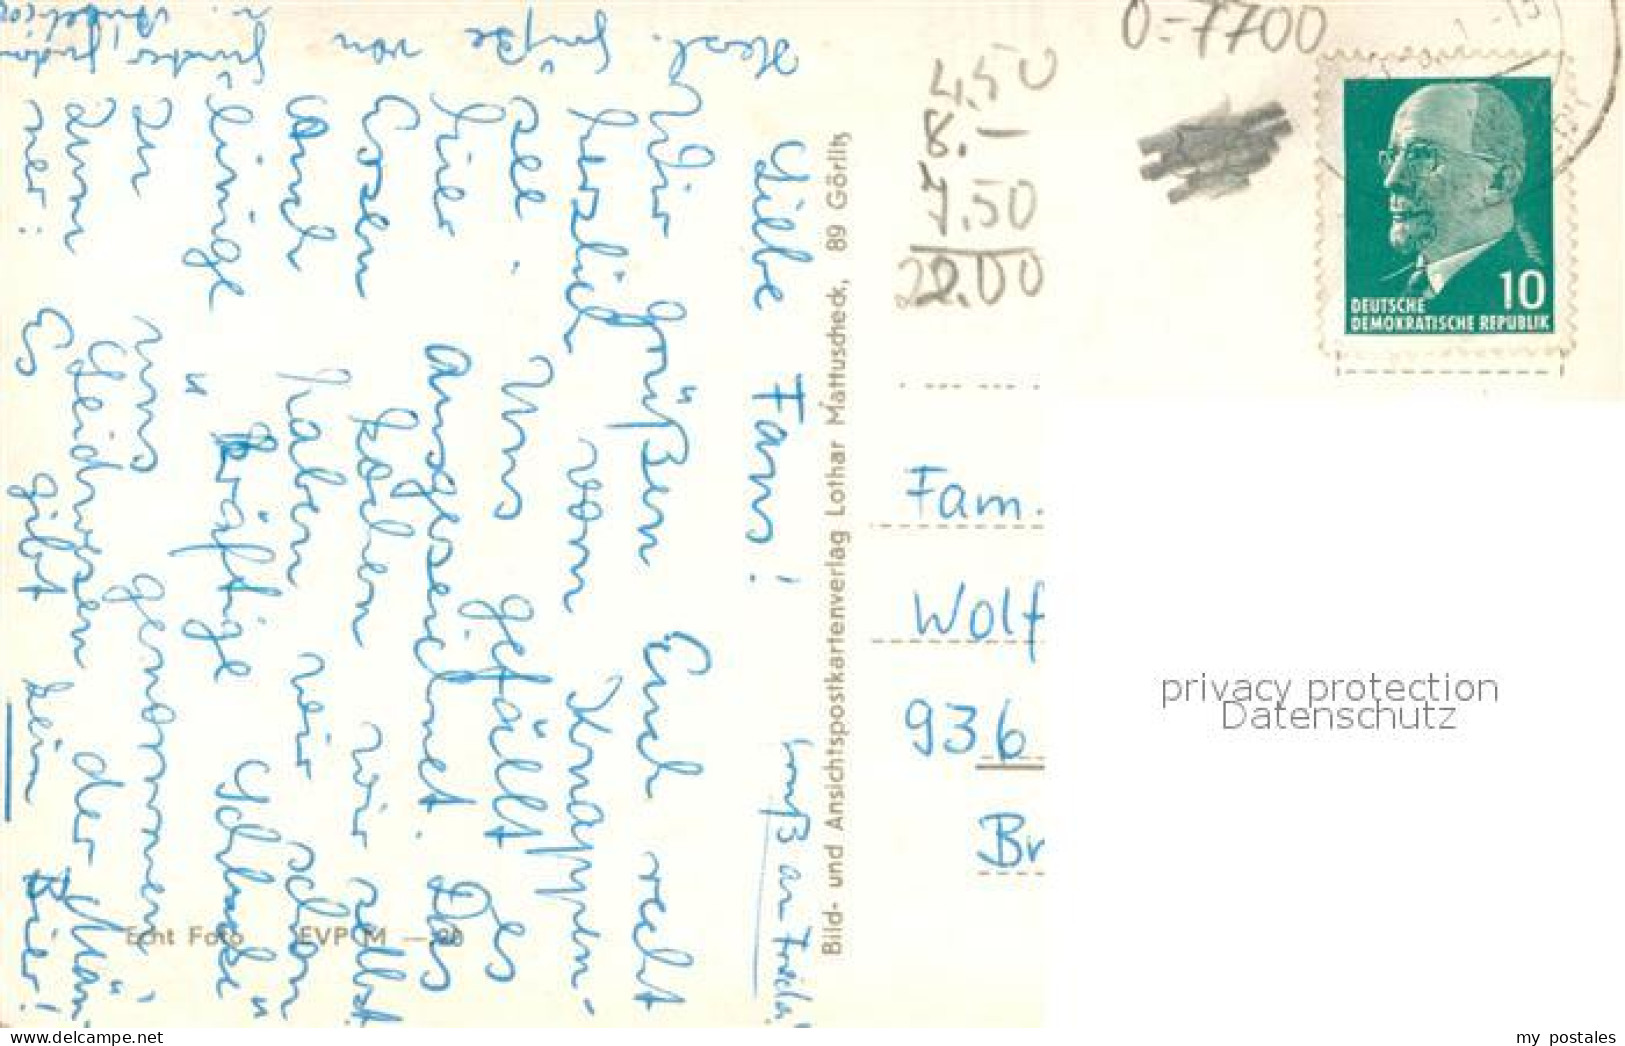 Liebe Fams!
Gruß an Frieda!
Wir grüßen Euch recht
herzlich vom Knappen-
see. Uns gefällt es
hier ausgezeichnet. Das
Essen kochen wir selbst
und haben wir schon
einige "kräftige Schlucke"
zu uns genommen,
zum Leidwesen der Män-
ner! Es gibt kein Bier!
Herzl. Grüße von
Bild- und Ansichtspostkartenverlag Lothar Mattuscheck, 89 Görlitz
Echt Foto EVP M —,20
0-7700
4,50
8.-
7.50
20.00
10
DEUTSCHE
DEMOKRATISCHE REPUBLIK
Fam.
Wolf
936
Br
privacy protection
Datenschutz
my postales